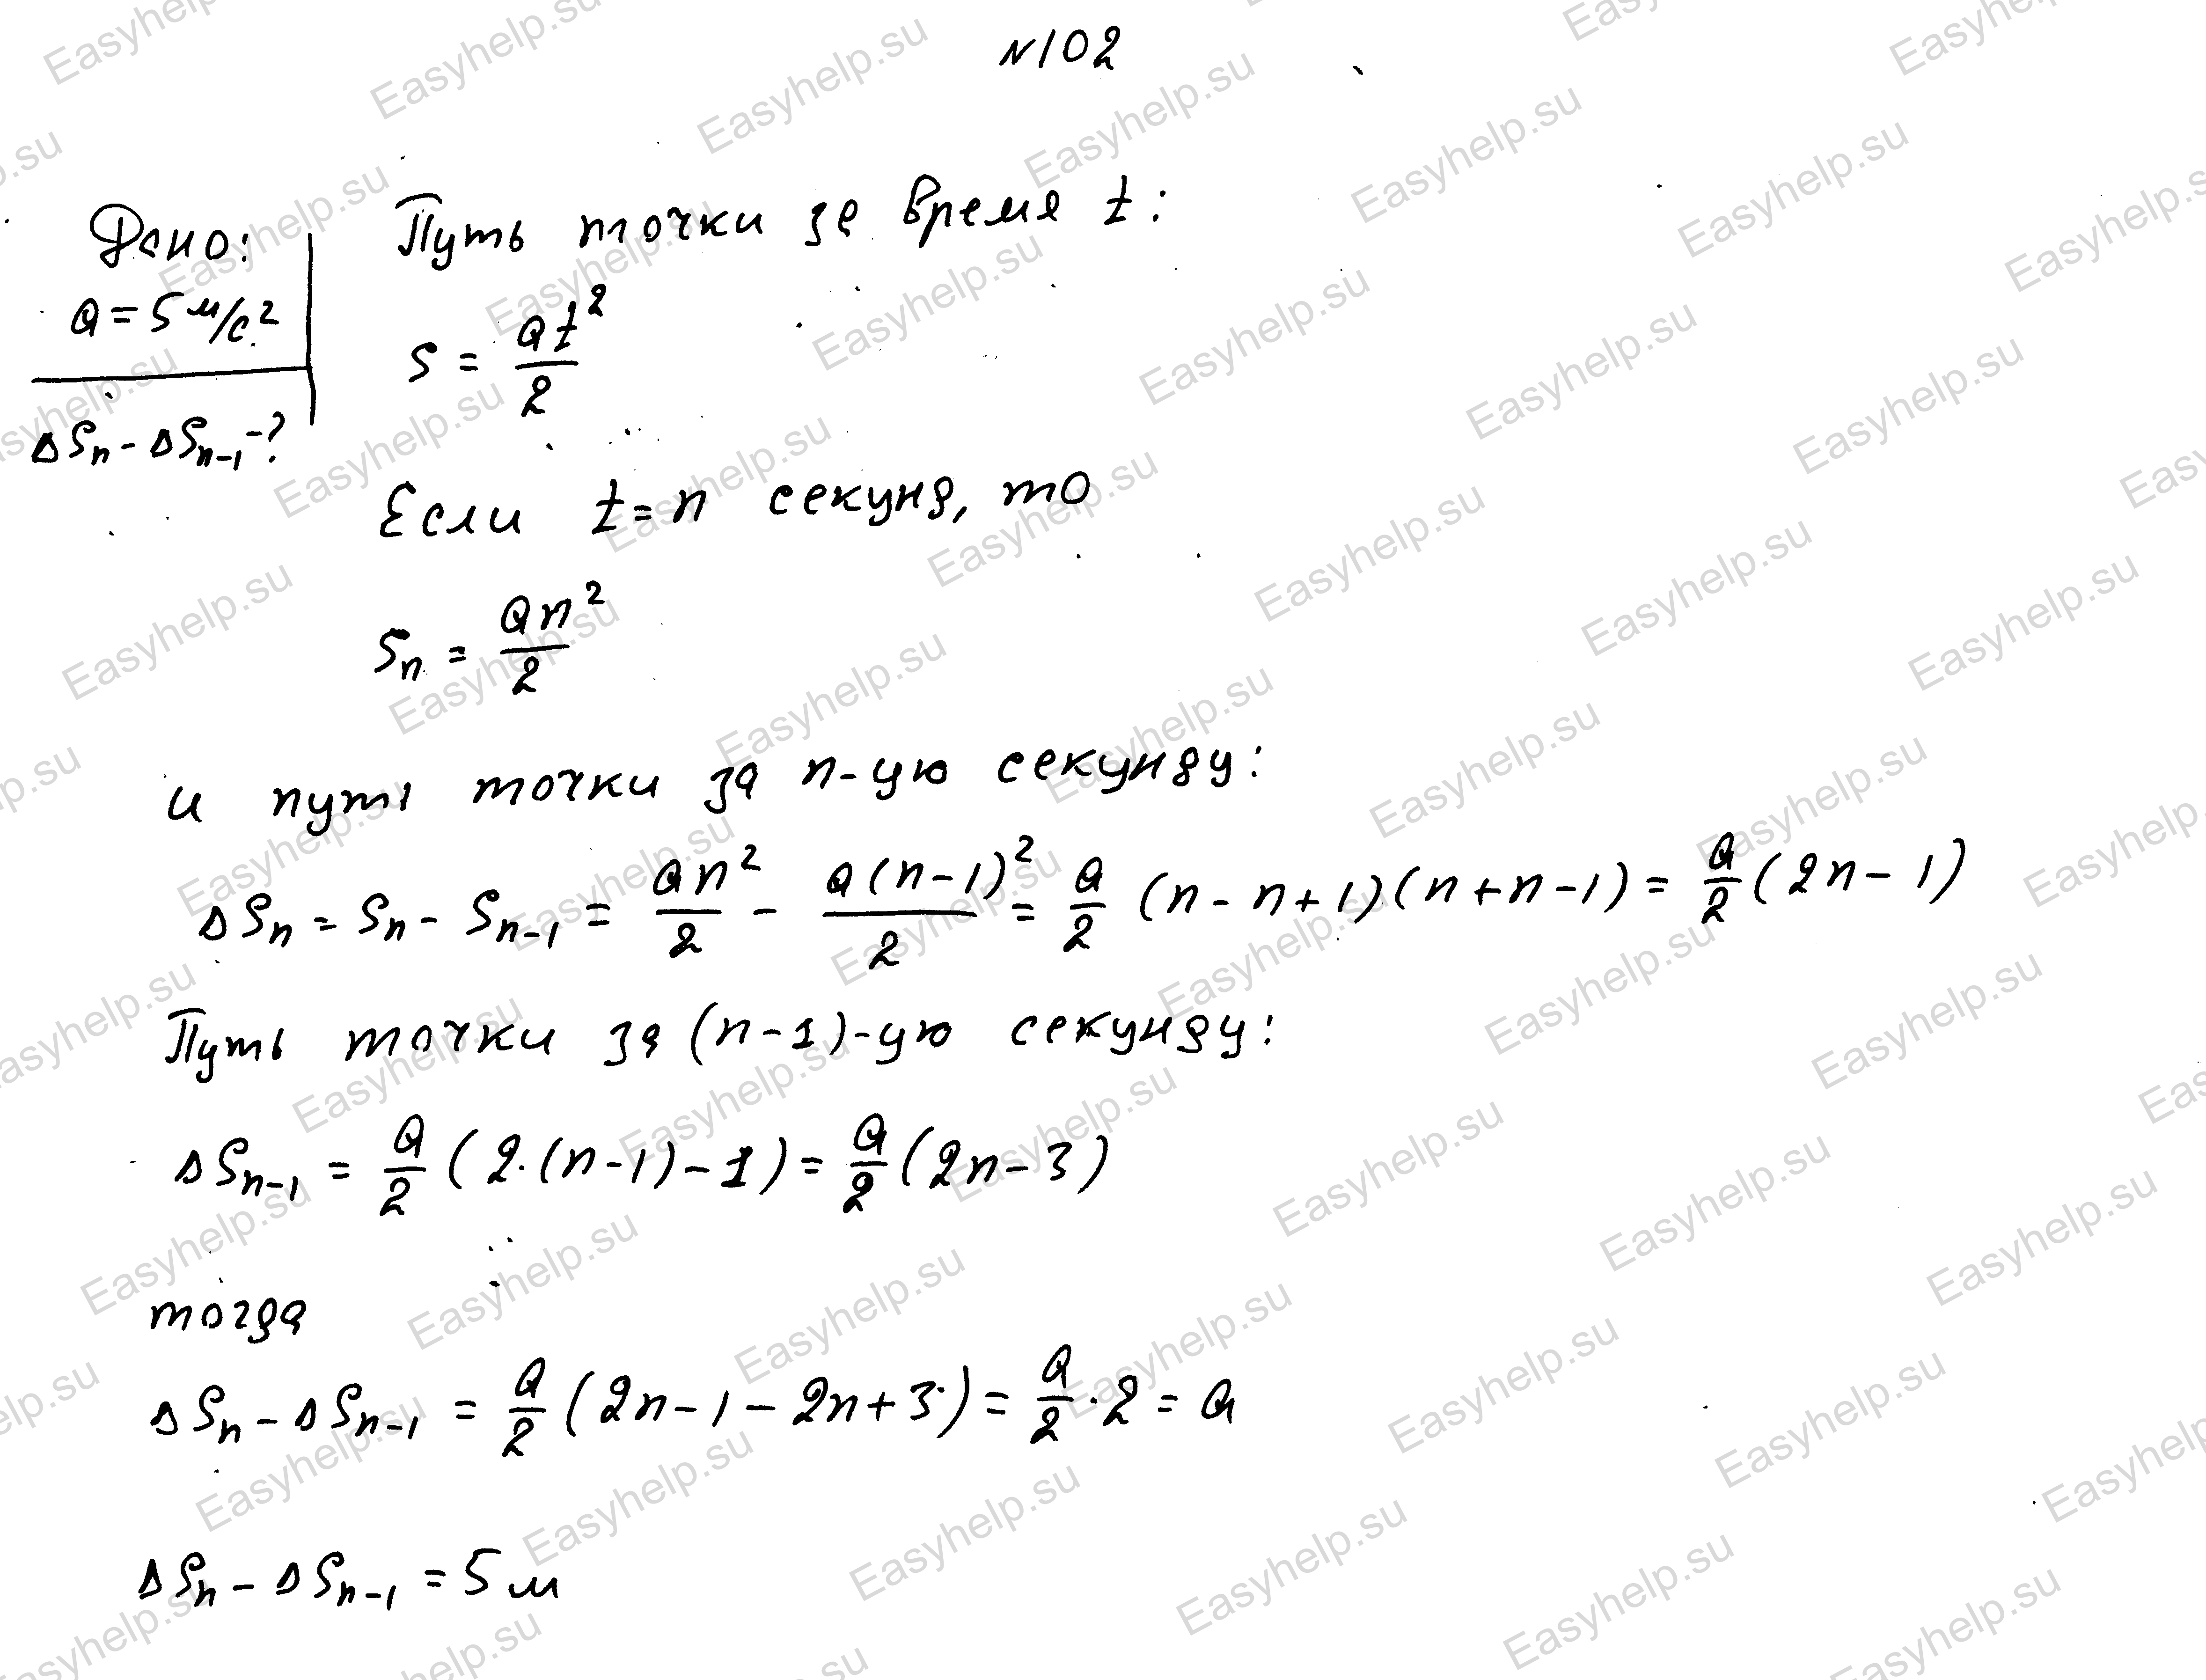 №102
Дано:
a = 5 м/с²
ΔSₙ - ΔSₙ₋₁ -?
Путь точки за время t:
S = at²/2
Если t = n секунд, то
Sₙ = an²/2
и путь точки за n-ую секунду:
ΔSₙ = Sₙ - Sₙ₋₁ = an²/2 - a(n-1)²/2 = a/2 (n - n + 1)(n + n - 1) = a/2 (2n - 1)
Путь точки за (n-1)-ую секунду:
ΔSₙ₋₁ = a/2 (2·(n-1) - 1) = a/2 (2n - 3)
тогда
ΔSₙ - ΔSₙ₋₁ = a/2 (2n - 1 - 2n + 3) = a/2 · 2 = a
ΔSₙ - ΔSₙ₋₁ = 5 м
Easyhelp.su